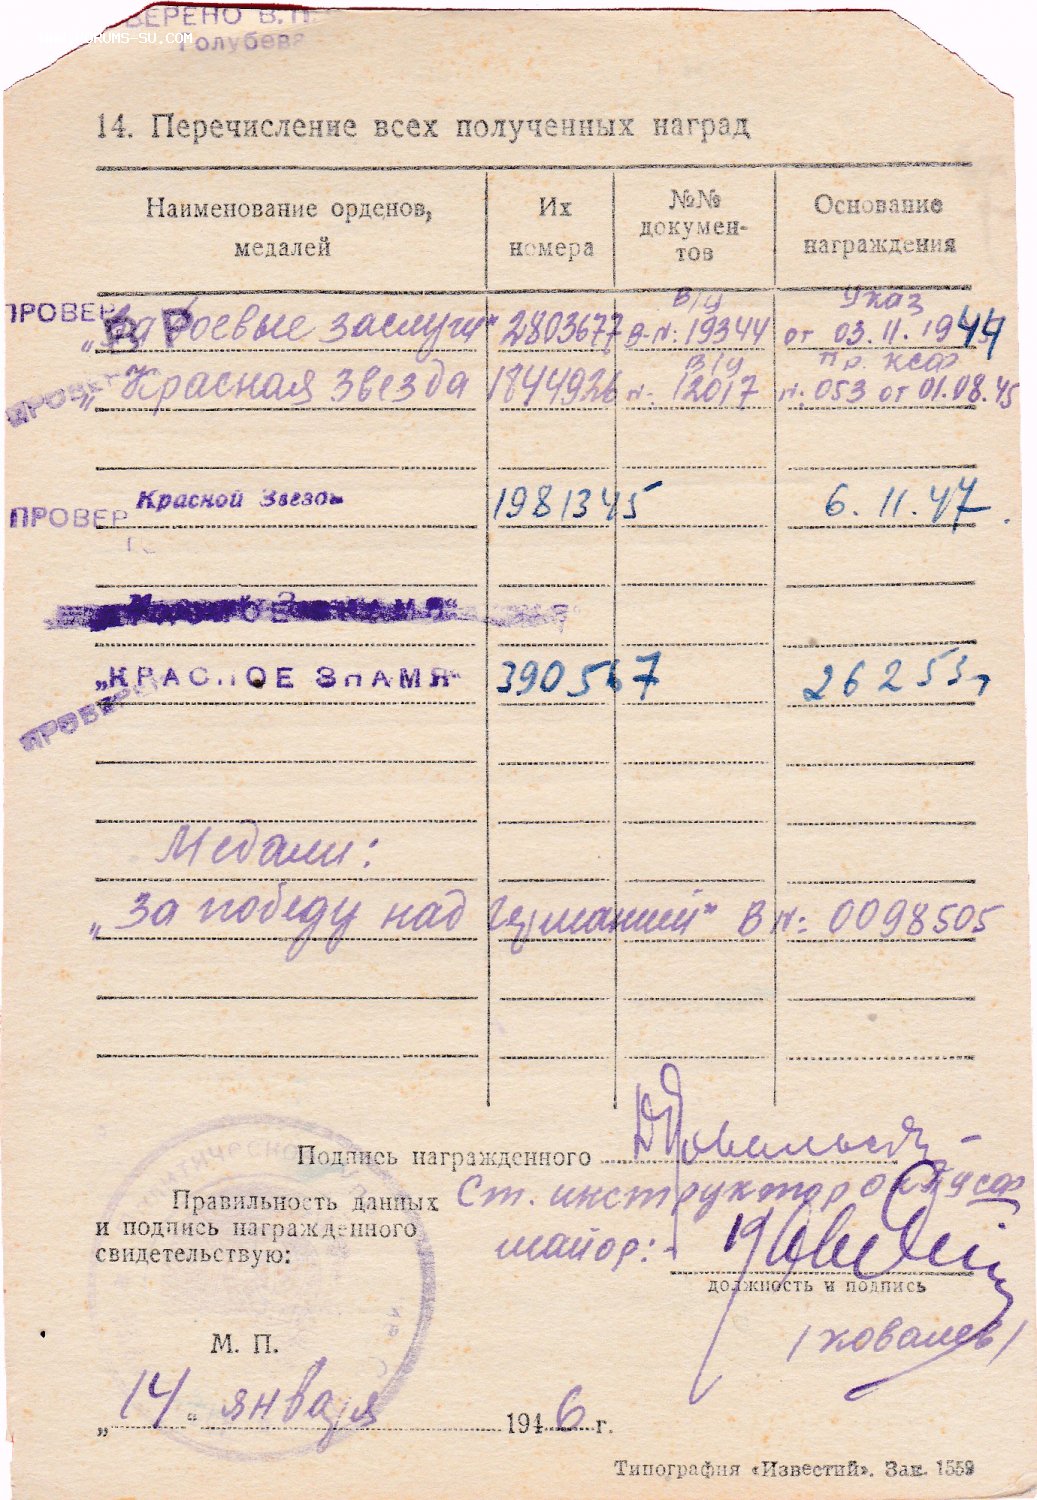 ВЕРЕНО В. П
Голубева
14. Перечисление всех полученных наград
Наименование орденов, медалей
Их номера
№№ докумен-тов
Основание награждения
ПРОВЕР
ВР
В/у Указ
„За боевые заслуги" 2803677 В-N: 19344 от 03.11.1944
ПРОВЕР
В/у Пр. КСФ
„Красная Звезда 1844926 N: 12017 N: 053 от 01.08.45
Красной Звезды 1981345 6.11.47.
ПРОВЕР
„КРАСНОЕ ЗНАМЯ" 390567 26 2 53
ПРОВЕР
Медали:
„За победу над Германией" В N: 0098505
Подпись награжденного
Правильность данных
и подпись награжденного
свидетельствую:
Ст. инструктор
майор:-
должность и подпись
/Ковалев/
М. П.
„14" января 1946 г.
Типография «Известий». Зак. 1559